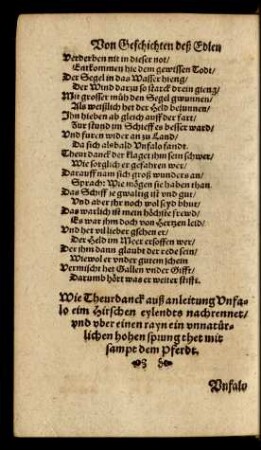 Von Geschichten deß Edlen
Verderben nit in dieser not/
Entkommen hie dem gewissen Todt/
Der Segel in das Wasser hieng/
Der Wind darzu so starck drein gieng/
Mit grosser müh den Segel gwunnen/
Als weißlich het der Held besunnen/
Ihn hieben ab gleich auff der fart/
Zur stund im Schieff es besser ward/
Vnd furen wider an zu Land/
Da sich alsbald Vnfalo fandt.
Theurdanck der klaget ihm sein schwer/
Wie sorglich er gefahren wer/
Darauff nam sich groß wunders an/
Sprach: Wie mögen sie haben than
Das Schiff je gwaltig ist vnd gut/
Vnd aber ihr noch wol seyd bhut/
Das warlich ist mein höchste frewd/
Es war ihm doch von Hertzen leid/
Vnd het vil lieber gsehen er/
Der Held im Meer ersoffen wer/
Der ihm dann glaubt der rede sein/
Wiewol er vnder gutem schein
Vermischt het Gallen vnder Gifft/
Darumb hört was er weiter stifft.
Wie Theurdanck auß anleitung Vnfa-
lo eim Hirschen eylendts nachrennet/
vnd vber einen rayn ein vnnatür-
lichen hohen sprung thet mit
sampt dem Pferdt.
Vnfalo